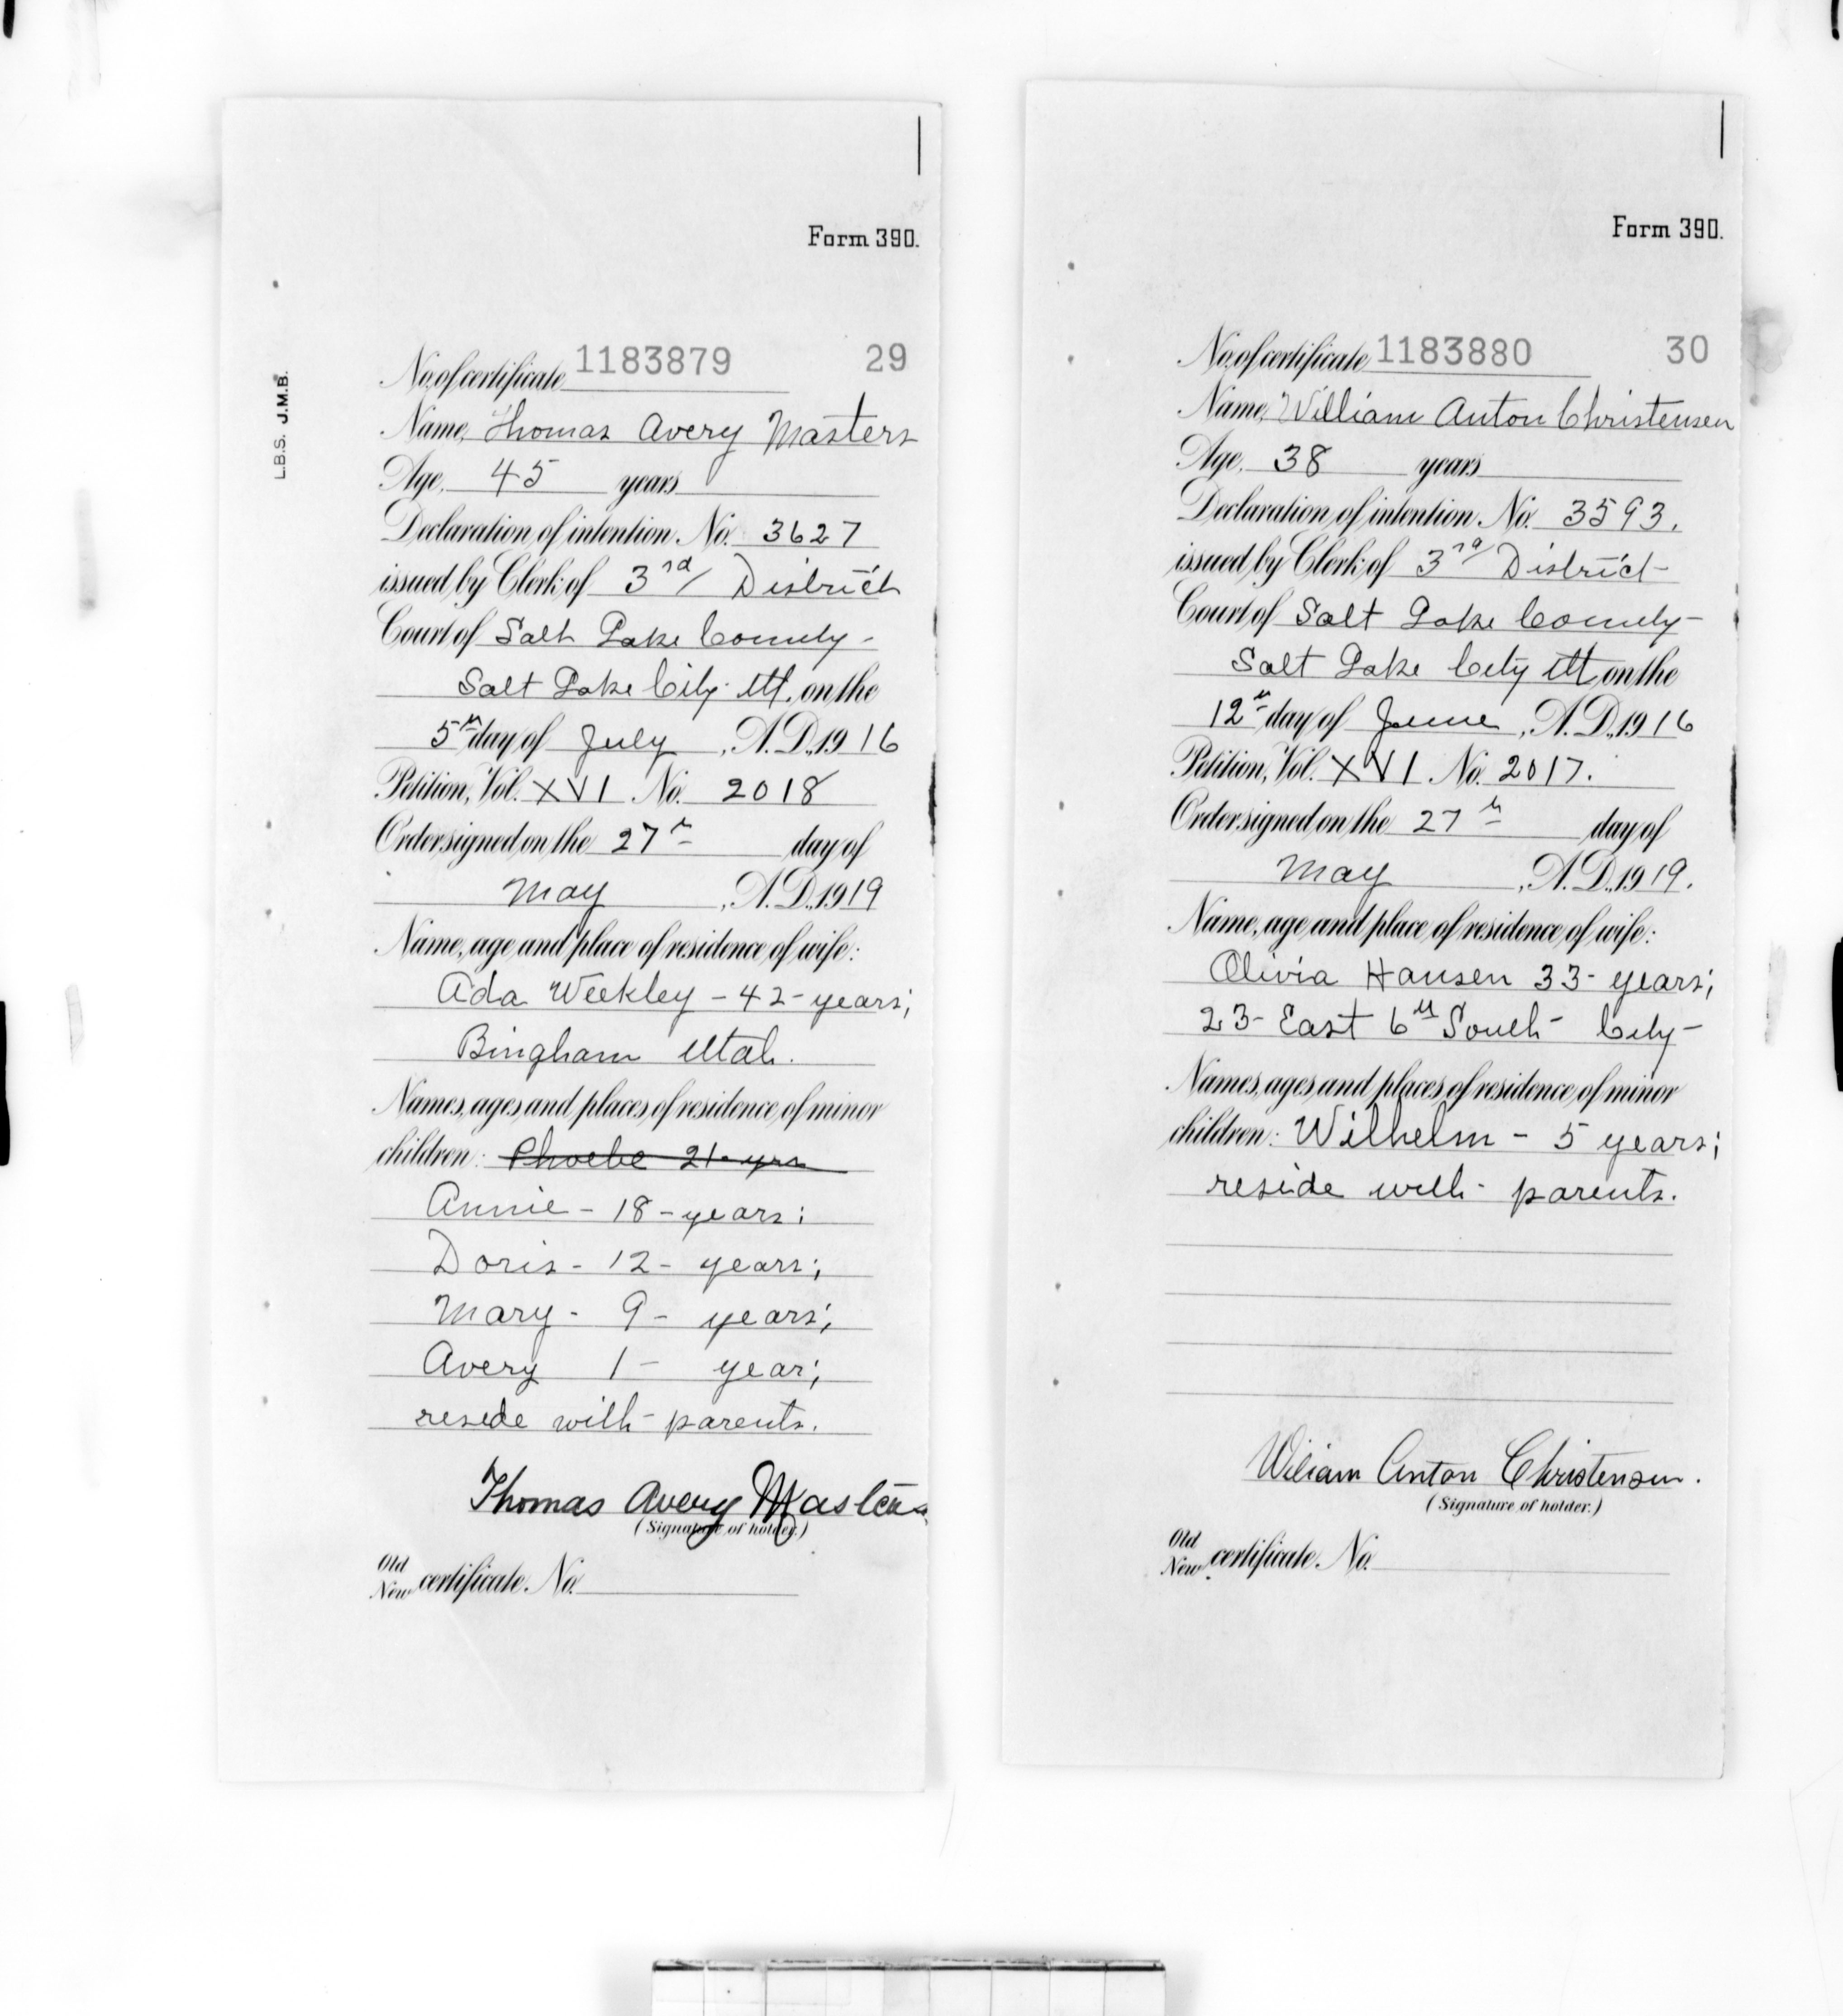 Form 390.
L.B.S. J.M.B.
No. of certificate 1183879 29
Name, Thomas Avery Masters
Age, 45 years
Declaration of intention No. 3627
issued by Clerk of 3rd District
Court of Salt Lake County -
Salt Lake City Ut. on the
5th day of July, A.D. 1916
Petition, Vol. XVI No. 2018
Order signed on the 27th day of
May, A.D. 1919
Name, age and place of residence of wife:
Ada Weekley - 42 - years;
Bingham Utah.
Names, ages and places of residence of minor
children: Phoebe 21 yrs
Annie - 18 - years;
Doris - 12 - years;
Mary - 9 - years;
Avery 1 - year;
reside with parents.
Thomas Avery Masters
(Signature of holder.)
Old
New certificate No.
Form 390.
No. of certificate 1183880 30
Name, William Anton Christensen
Age, 38 years
Declaration of intention No. 3593.
issued by Clerk of 3rd District -
Court of Salt Lake County -
Salt Lake City Ut on the
12th day of June, A.D. 1916
Petition, Vol. XVI No. 2017.
Order signed on the 27th day of
May, A.D. 1919.
Name, age and place of residence of wife:
Olivia Hansen 33 - years;
23 - East 6th South - City -
Names, ages and places of residence of minor
children: Wilhelm - 5 years;
reside with parents.
Wiliam Anton Christensen.
(Signature of holder.)
Old
New certificate No.